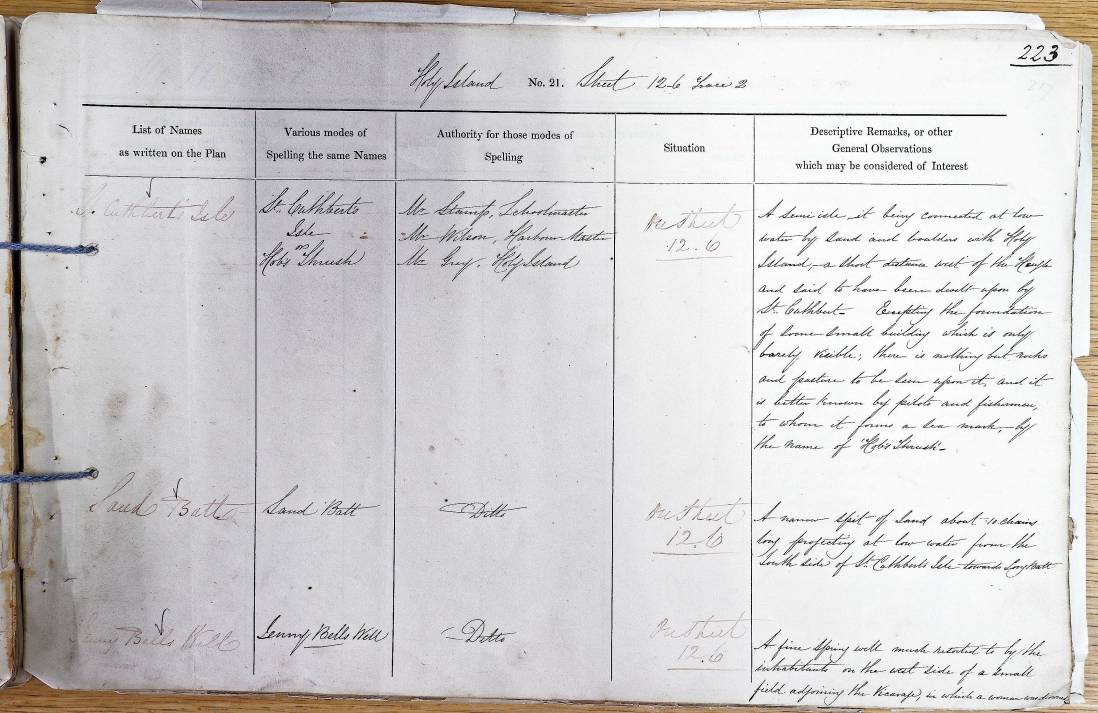 223
Holy Island No. 21. Sheet 12.6 Trace 2
List of Names
as written on the Plan
Various modes of
Spelling the same Names
Authority for those modes of
Spelling
Situation
Descriptive Remarks, or other
General Observations
which may be considered of Interest
St. Cuthbert's Isle
St. Cuthberts
Isle
or
Hobs Thrush
Mr. Stamp, Schoolmaster
Mr. Wilson, Harbour Master
Mr. Grey. Holy Island
On Sheet
12.6
A semi isle it being connected at low
water by sand and boulders with Holy
Island,-a short distance west of the Heugh
and said to have been dwelt upon by
St. Cuthbert- Excepting the foundation
of some small building which is only
barely visible; there is nothing but rocks
and pasture to be seen upon it, and it
is better known by pilots and fishermen,
to whom it forms a sea mark,-by
the name of "Hobs Thrush"-
Sand Batt
Sand Batt
Ditto
On Sheet
12.6
A narrow spit of Sand about 10 chains
long projecting at low water from the
South side of St. Cuthberts Isle towards Long Batt
Jenny Bells Well
Jenny Bells Well
Ditto
On Sheet
12.6
A fine spring well much resorted to by the
inhabitants on the west side of a small
field adjoining the Vicarage, in which a woman was drowned